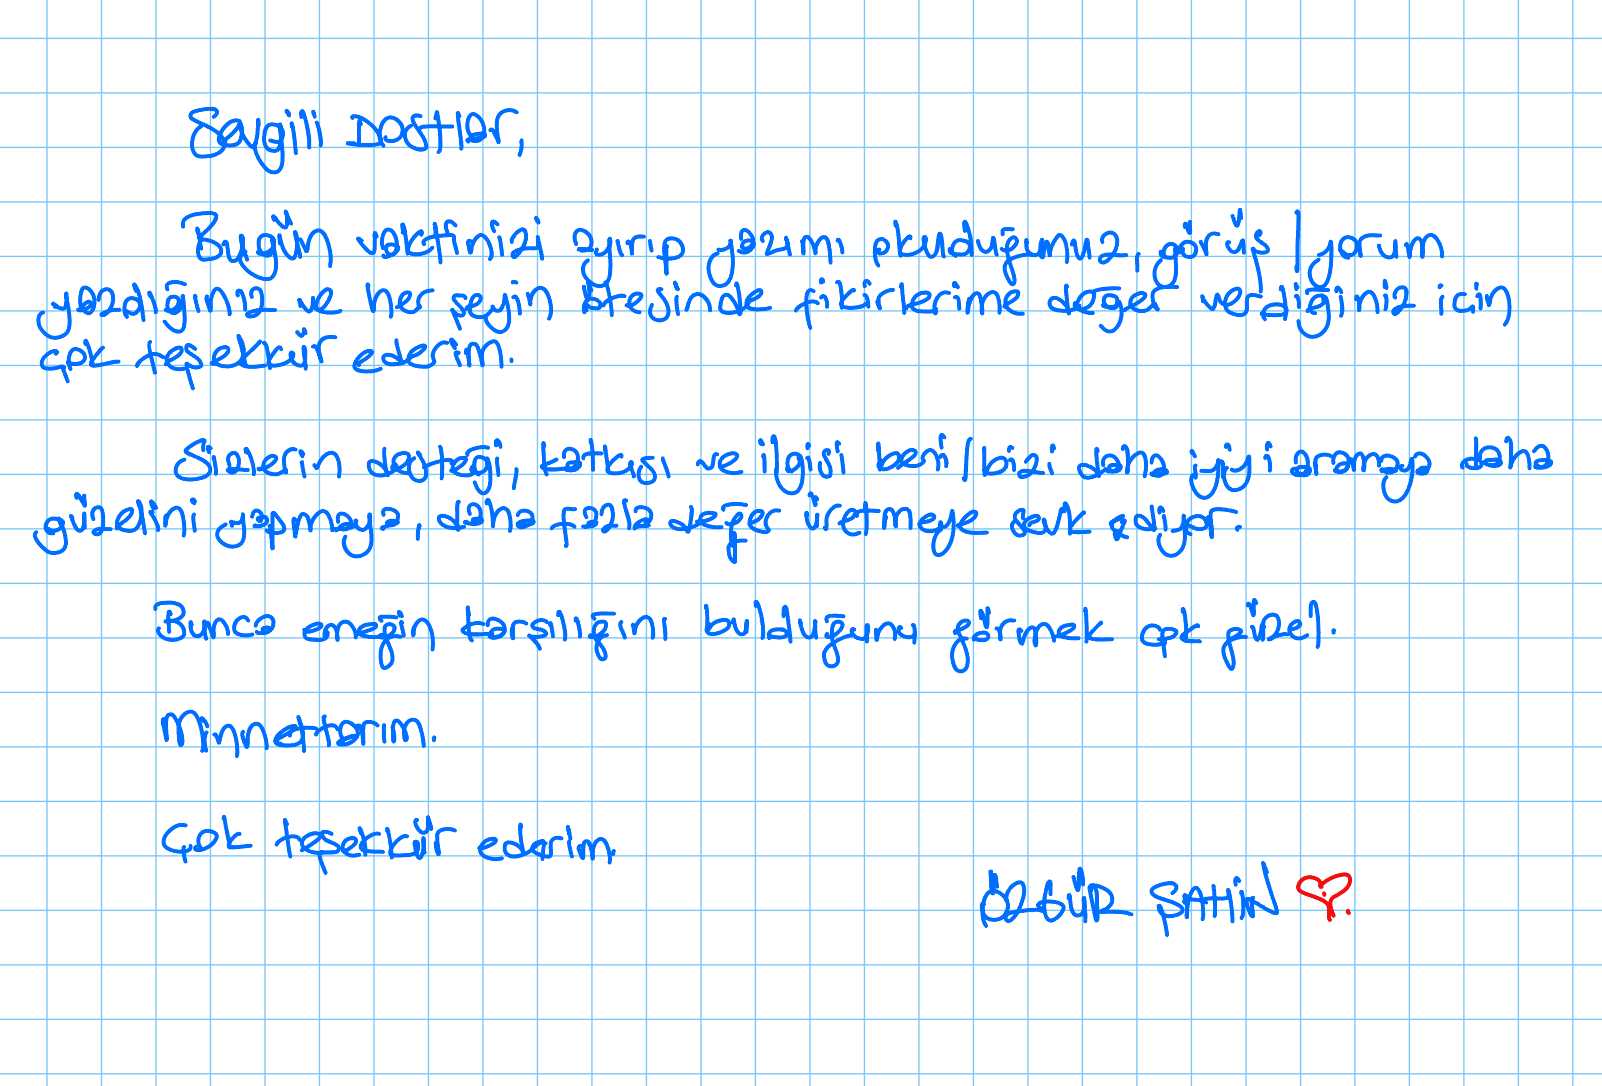 Sevgili Dostlar,
Bugün vaktinizi ayırıp yazımı okuduğunuz, görüş / yorum
yazdığınız ve her şeyin ötesinde fikirlerime değer verdiğiniz için
çok teşekkür ederim.
Sizlerin desteği, katkısı ve ilgisi beni / bizi daha iyiyi aramaya daha
güzelini yapmaya, daha fazla değer üretmeye sevk ediyor.
Bunca emeğin karşılığını bulduğunu görmek çok güzel.
Minnettarım.
Çok teşekkür ederim.
ÖZGÜR ŞAHİN